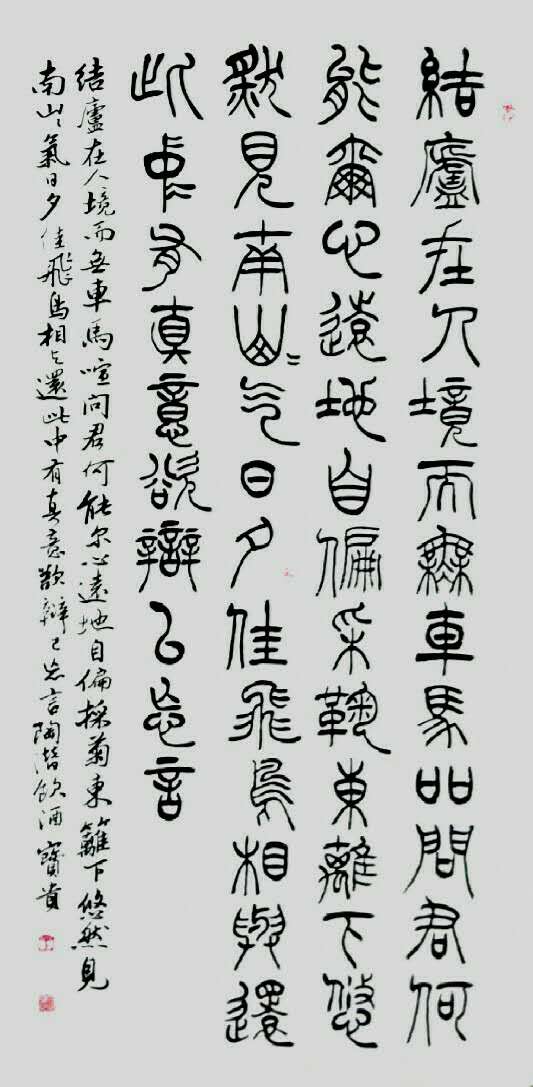 結廬在人境而無車馬吅問君何
能爾心遠地自偏采鞠東離下悠
然見南山〻气日夕佳飛鳥相與還
此中有真意欲辯已忘言
結廬在人境而無車馬喧問君何能尔心遠地自偏採菊東籬下悠然見
南山〻氣日夕佳飛鳥相与還此中有真意欲辯已忘言陶潛飲酒 寶貴